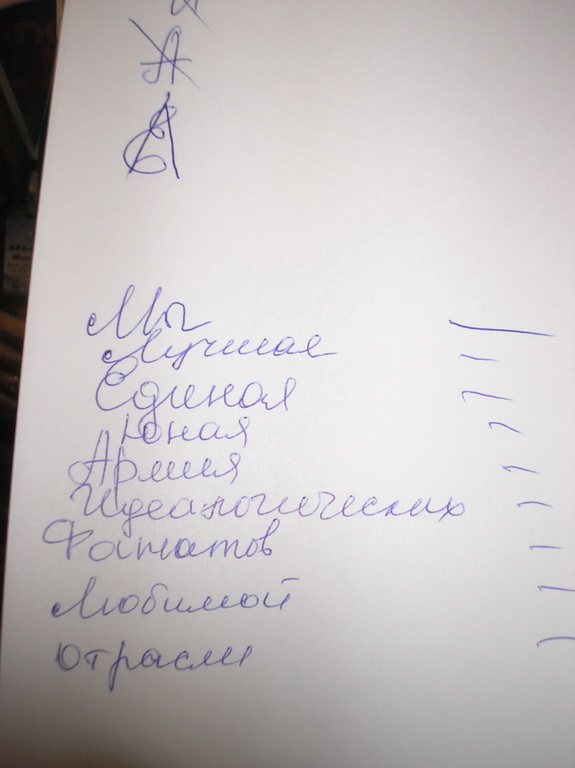 А
Мы
Лучшая
Единая
Юная
Армия
Идеалогических
Фанатов
Любимой
Отрасли